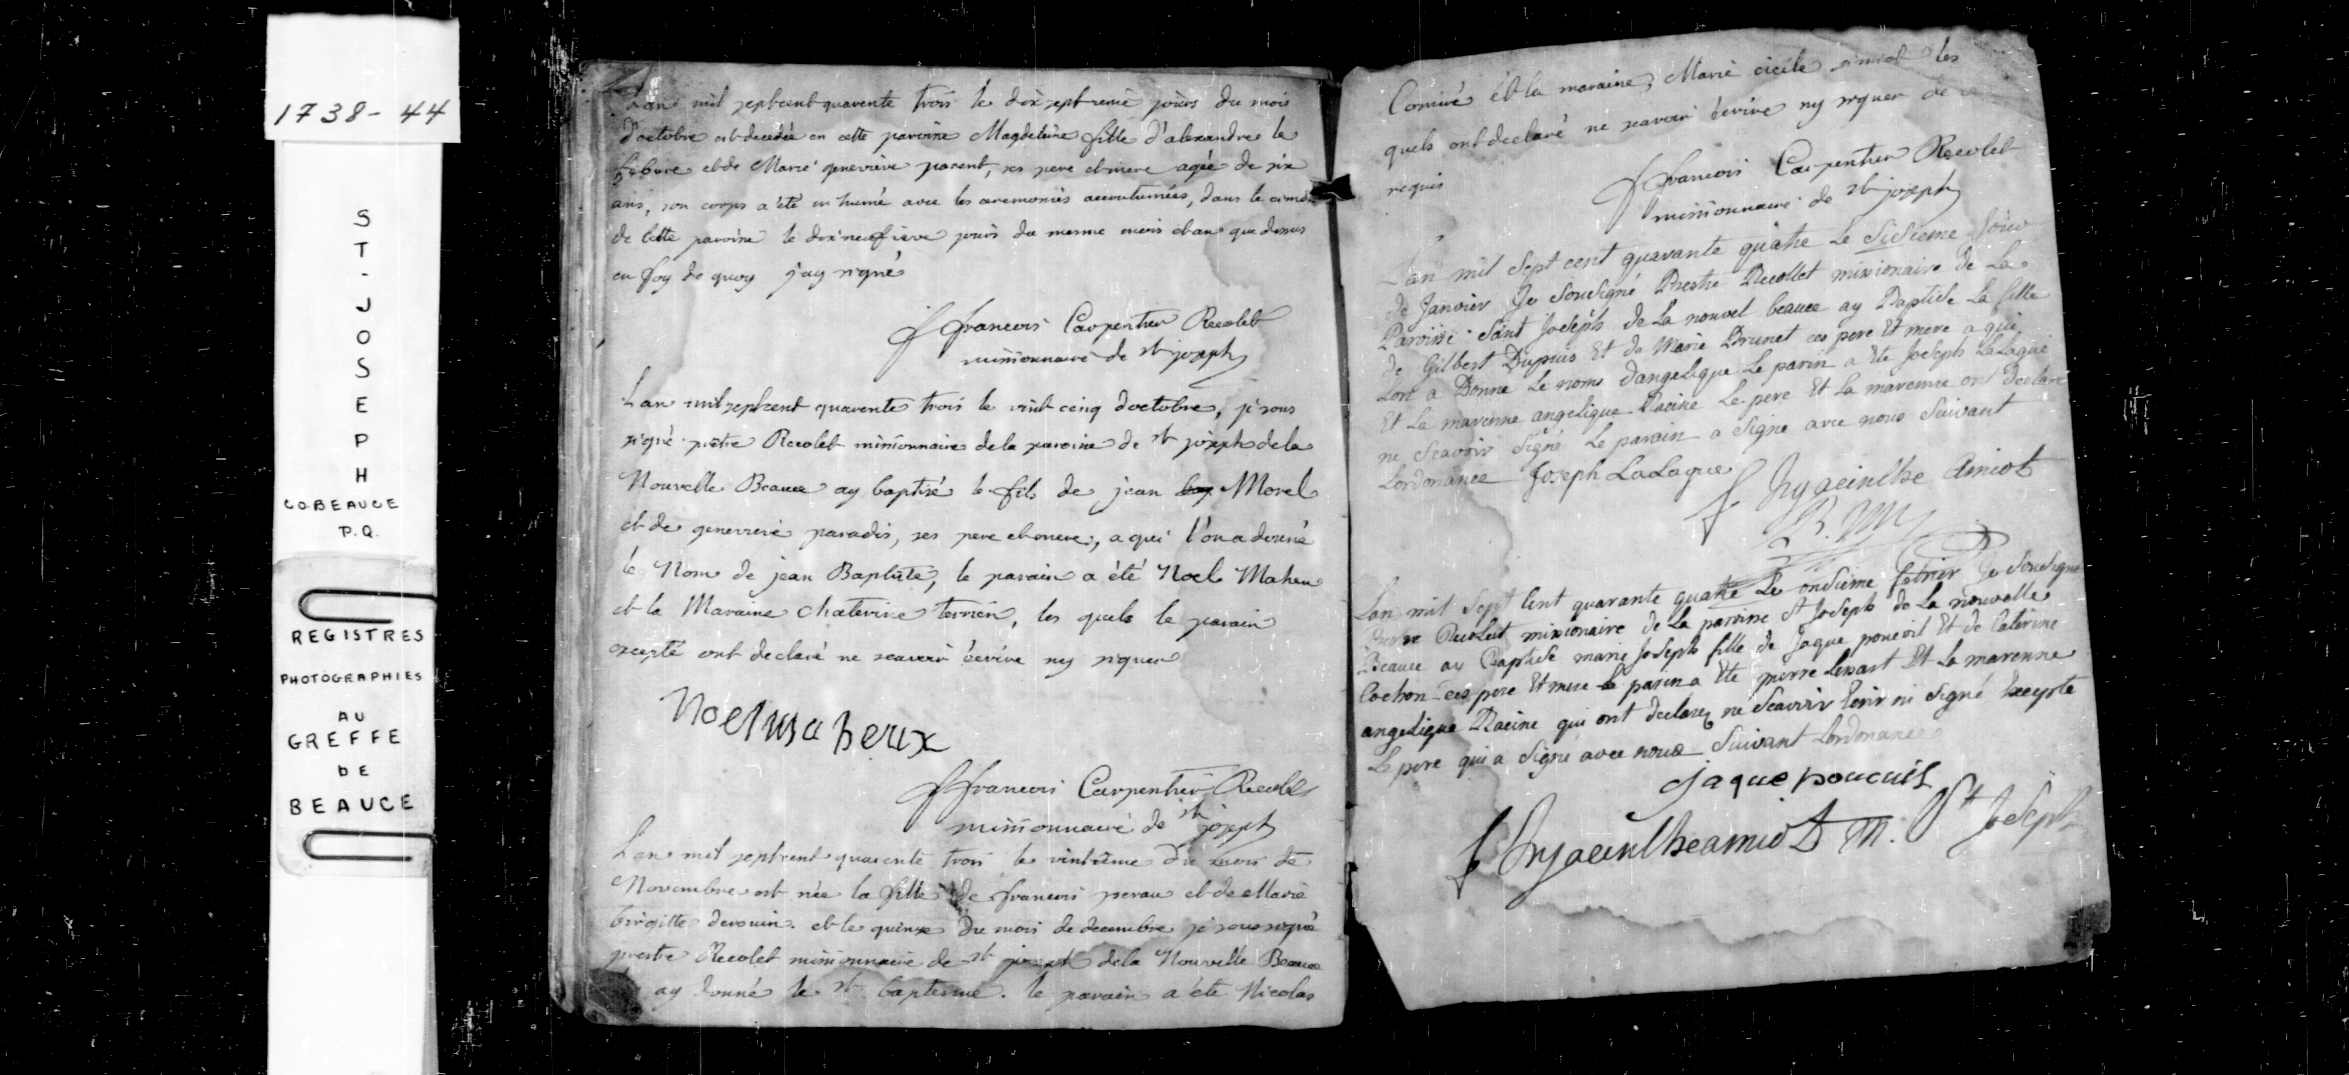 1738-44
ST-JOSEPH
CO.BEAUCE
P.Q.
REGISTRES
PHOTOGRAPHIES
AU
GREFFE
DE
BEAUCE
L'an mil septcent quarente trois le dixseptieme jours du mois
d'octobre est decedée en cette paroisse Magdeleine fille d'alexandre le
febvre et de Marie genevieve parent, ses pere et mere agée de six
ans, son corps a été in humé avec les ceremonies accoutumées, dans le cime
de cette paroisse le dixneufieve jours du mesme mois et an que dessus
en foy de quoy j'ay signé
f francois Carpentier Recolet
missionnaire de st joseph
L'an mil septcent quarente trois le vint cinq doctobre, je sous
signé pretre Recolet missionnaire de la paroisse de st joseph de la
Nouvelle Beauce ay baptisé le fils de jean Morel
et de genevieve paradis, ses pere et mere, a qui l'on a donné
le Nom de jean Baptiste, le parain a été Noel Maheu
et la Maraine chaterine terrien, les quels le parain
excepté ont declaré ne scavoir écrire ny signer
Noel maheux
f francois Carpentier Recolet
missionnaire de st joseph
L'an mil septcent quarente trois le vintieme du mois de
Novembre est née la fille de francois perau et de Marie
brigitte derouin. et le quinze du mois de decembre je soussigné
prestre Recolet missionnaire de st joseph de la Nouvelle Beauce
ay donné le st baptesme. le parain a été Nicolas
Comiré et la maraine, Marie cicile simiot les
quels ont declaré ne scavoir écrire ny signer de ce
requis
f francois Carpentier Recolet
missionnaire de st joseph
Lan mil sept cent quarante quatre Le Sisieme Jour
de Janvier Je Sousigné Prestre Recollet missionaire de La
Paroisse Saint Joseph de La nouvel beauce ay Baptise La fille
de Gilbert Dupuis Et de Marie Brunet ces pere Et mere a qui
Lont a Donne Le noms dangelique Le parin a Ete Joseph LaLague
Et La marenne angelique Racine Le pere Et La marenne ont Declare
ne Scavoir Signé Le parain a Signe avec nous Suivant
Lordonance Joseph LaLague
f hyacinthe Amiot
R. M
Lan mil Sept Cent quarante quatre Le onsieme febrier Je Sousigné
Recolest missionaire de La paroisse St Joseph de La nouvelle
Beauce ay Baptise marie Joseph fille de Jaque poucoit Et de Caterine
Cochon ces pere Et mere Le parin a Ete pierre Lessart Et La marenne
angelique Racine qui ont declarez ne Scavoir Ecrir ni Signé Excepte
Le pere qui a Signe avec nous Suivant Lordonance
Jaque poucuis
f hyacinthe amiot M. St Joseph